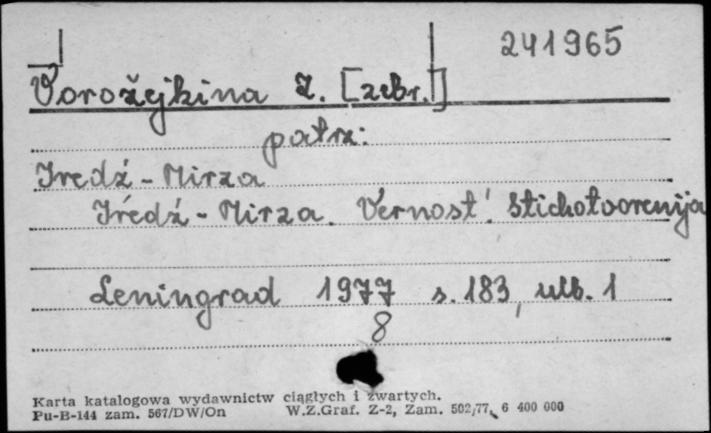 241965
Vorožejkina Z. [zebr.]
patrz:
Iredź-Mirza
Iredź-Mirza. Vernost'. Stichotvorenija
Leningrad 1977 s. 183, ulb. 1
8
Karta katalogowa wydawnictw ciągłych i zwartych.
Pu-B-144 zam. 567/DW/On W.Z.Graf. Z-2, Zam. 502/77, 6 400 000